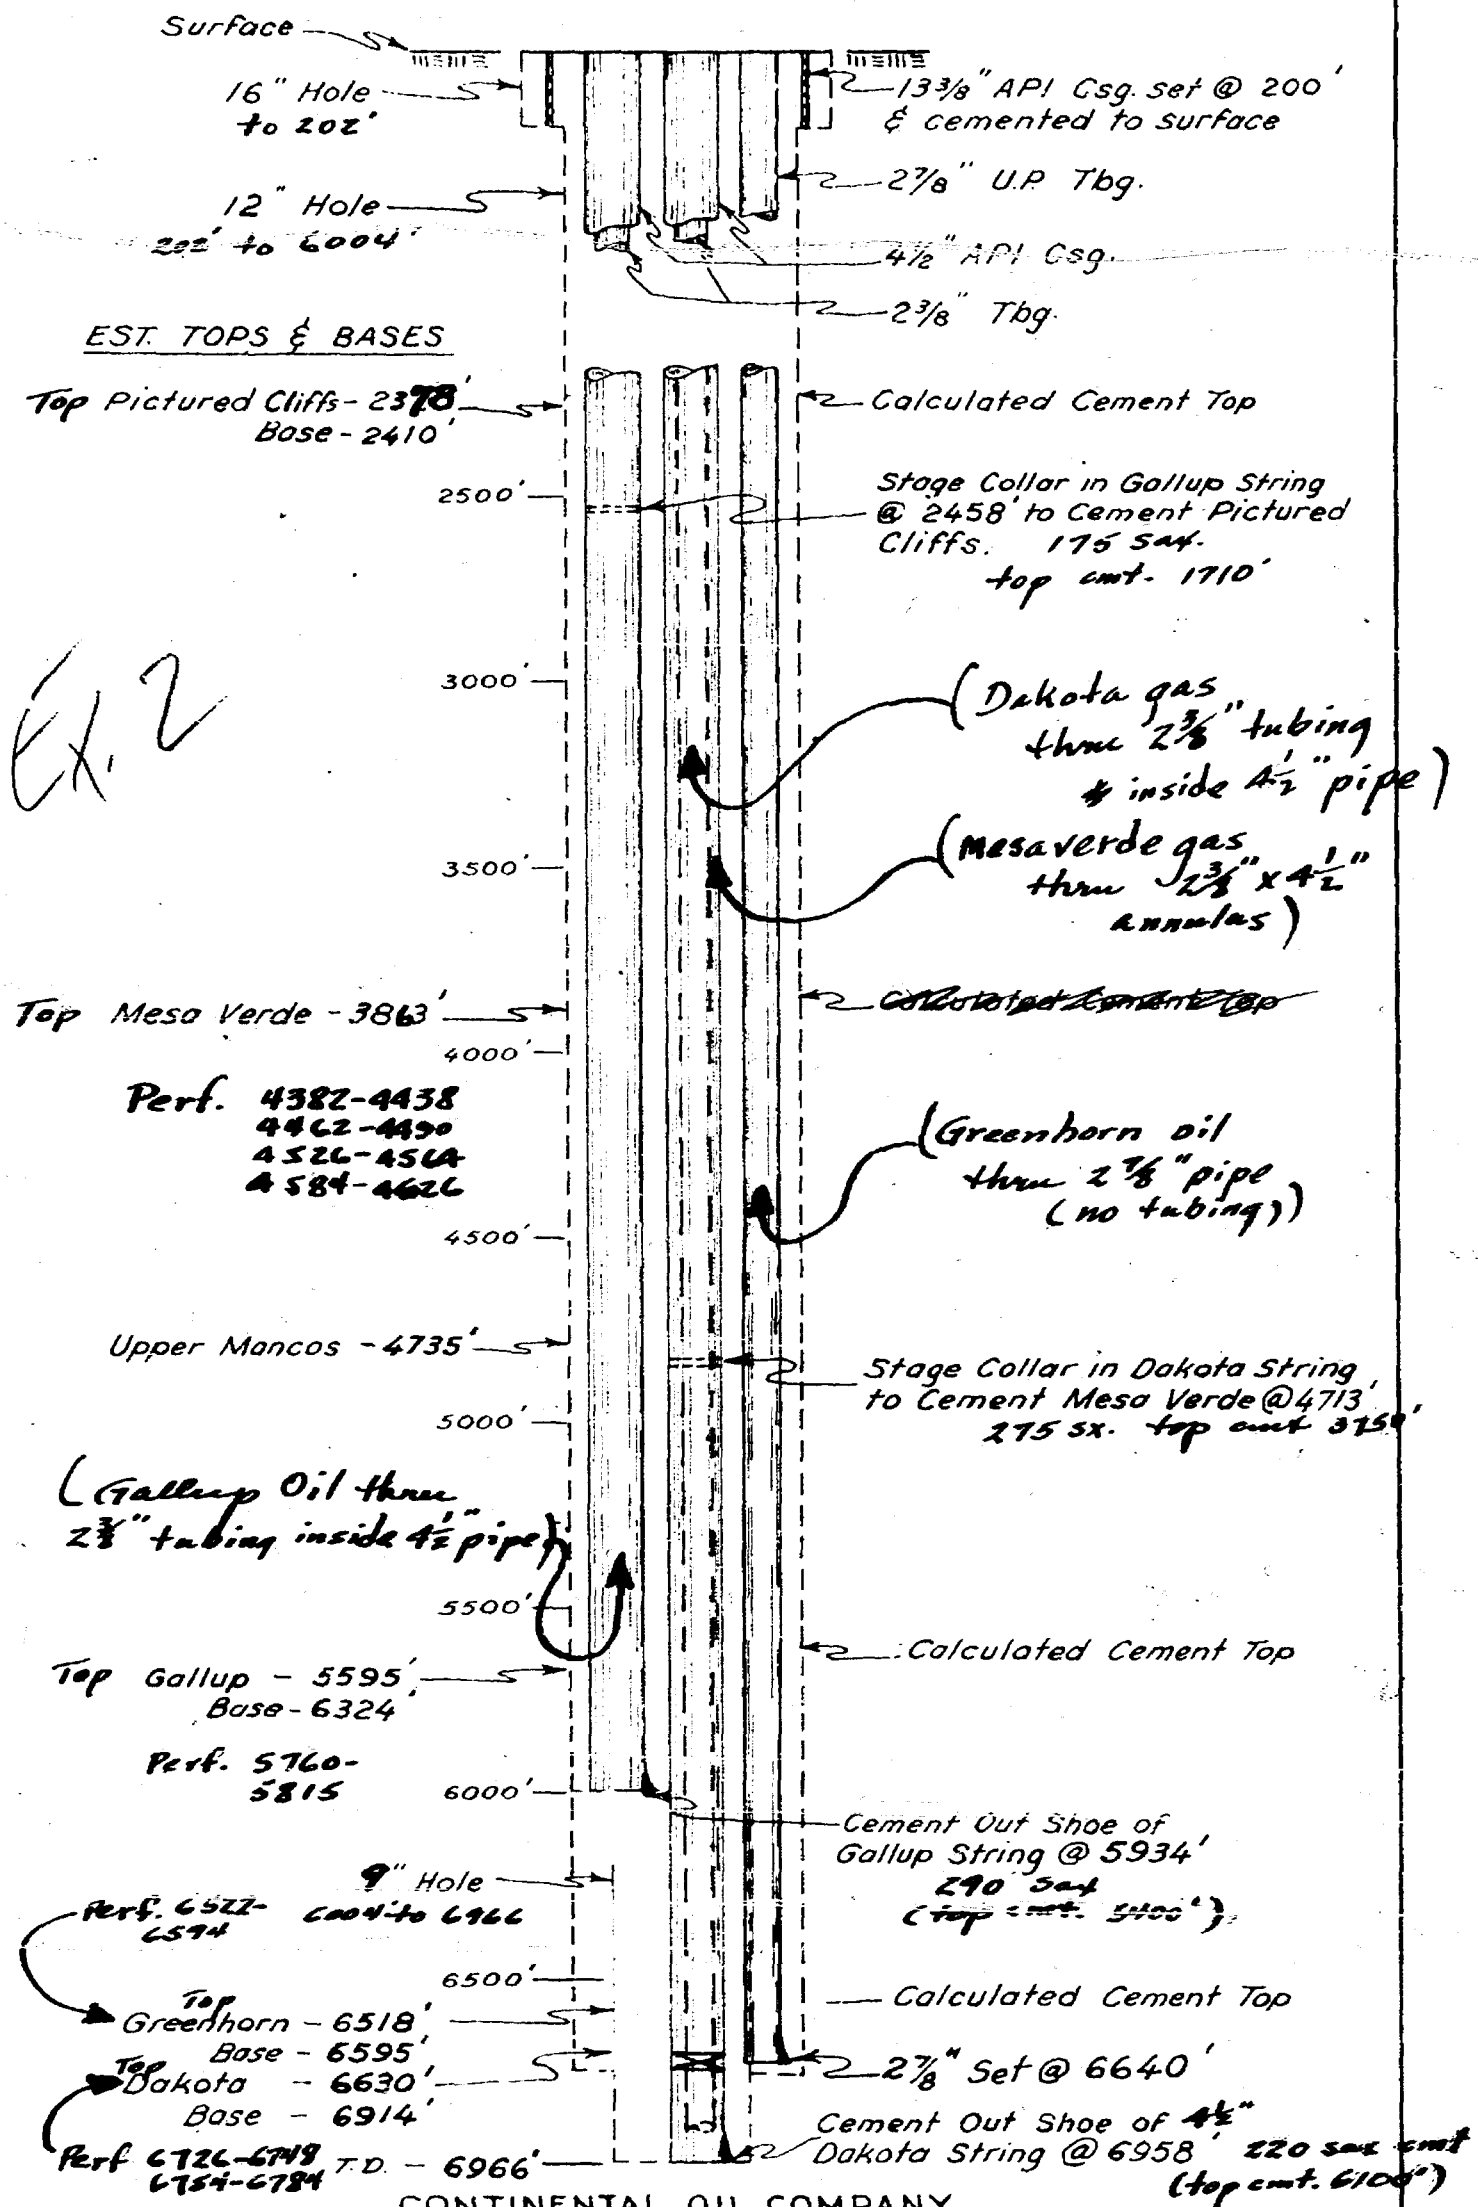 Surface
16" Hole
to 202'
13 3/8" API Csg. set @ 200'
& cemented to surface
2 7/8" U.P. Tbg.
12" Hole
202' to 6004'
4 1/2" API Csg.
2 3/8" Tbg.
EST. TOPS & BASES
Top Pictured Cliffs - 2378'
Base - 2410'
Calculated Cement Top
2500'
Stage Collar in Gallup String
@ 2458' to Cement Pictured
Cliffs. 175 sax.
top cmt. 1710'
Ex. 2
3000'
(Dakota gas
thru 2 3/8" tubing
inside 4 1/2" pipe)
3500'
(Mesaverde gas
thru 2 3/8" x 4 1/2"
annulas)
Top Mesa Verde - 3863'
Calculated Cement Top
4000'
Perf. 4382-4438
4462-4490
4526-4564
4584-4626
(Greenhorn oil
thru 2 7/8" pipe
(no tubing))
4500'
Upper Mancos - 4735'
Stage Collar in Dakota String
to Cement Mesa Verde @ 4713'
275 sx. top cmt
5000'
(Gallup Oil thru
2 3/8" tubing inside 4 1/2" pipe)
5500'
Calculated Cement Top
Top Gallup - 5595'
Base - 6324'
Perf. 5760-
5815
6000'
Cement Out Shoe of
Gallup String @ 5934'
290 sax
(top cmt. 5400')
9" Hole
6004' to 6966
Perf. 6522-
6594
6500'
Calculated Cement Top
Top
Greenhorn - 6518'
Base - 6595'
Top
Dakota - 6630'
Base - 6914'
2 7/8" Set @ 6640'
Cement Out Shoe of 4 1/2"
Dakota String @ 6958' 220 sax cmt
(top cmt. 6100')
Perf 6726-6748
6754-6784
T.D. - 6966'
CONTINENTAL OIL COMPANY